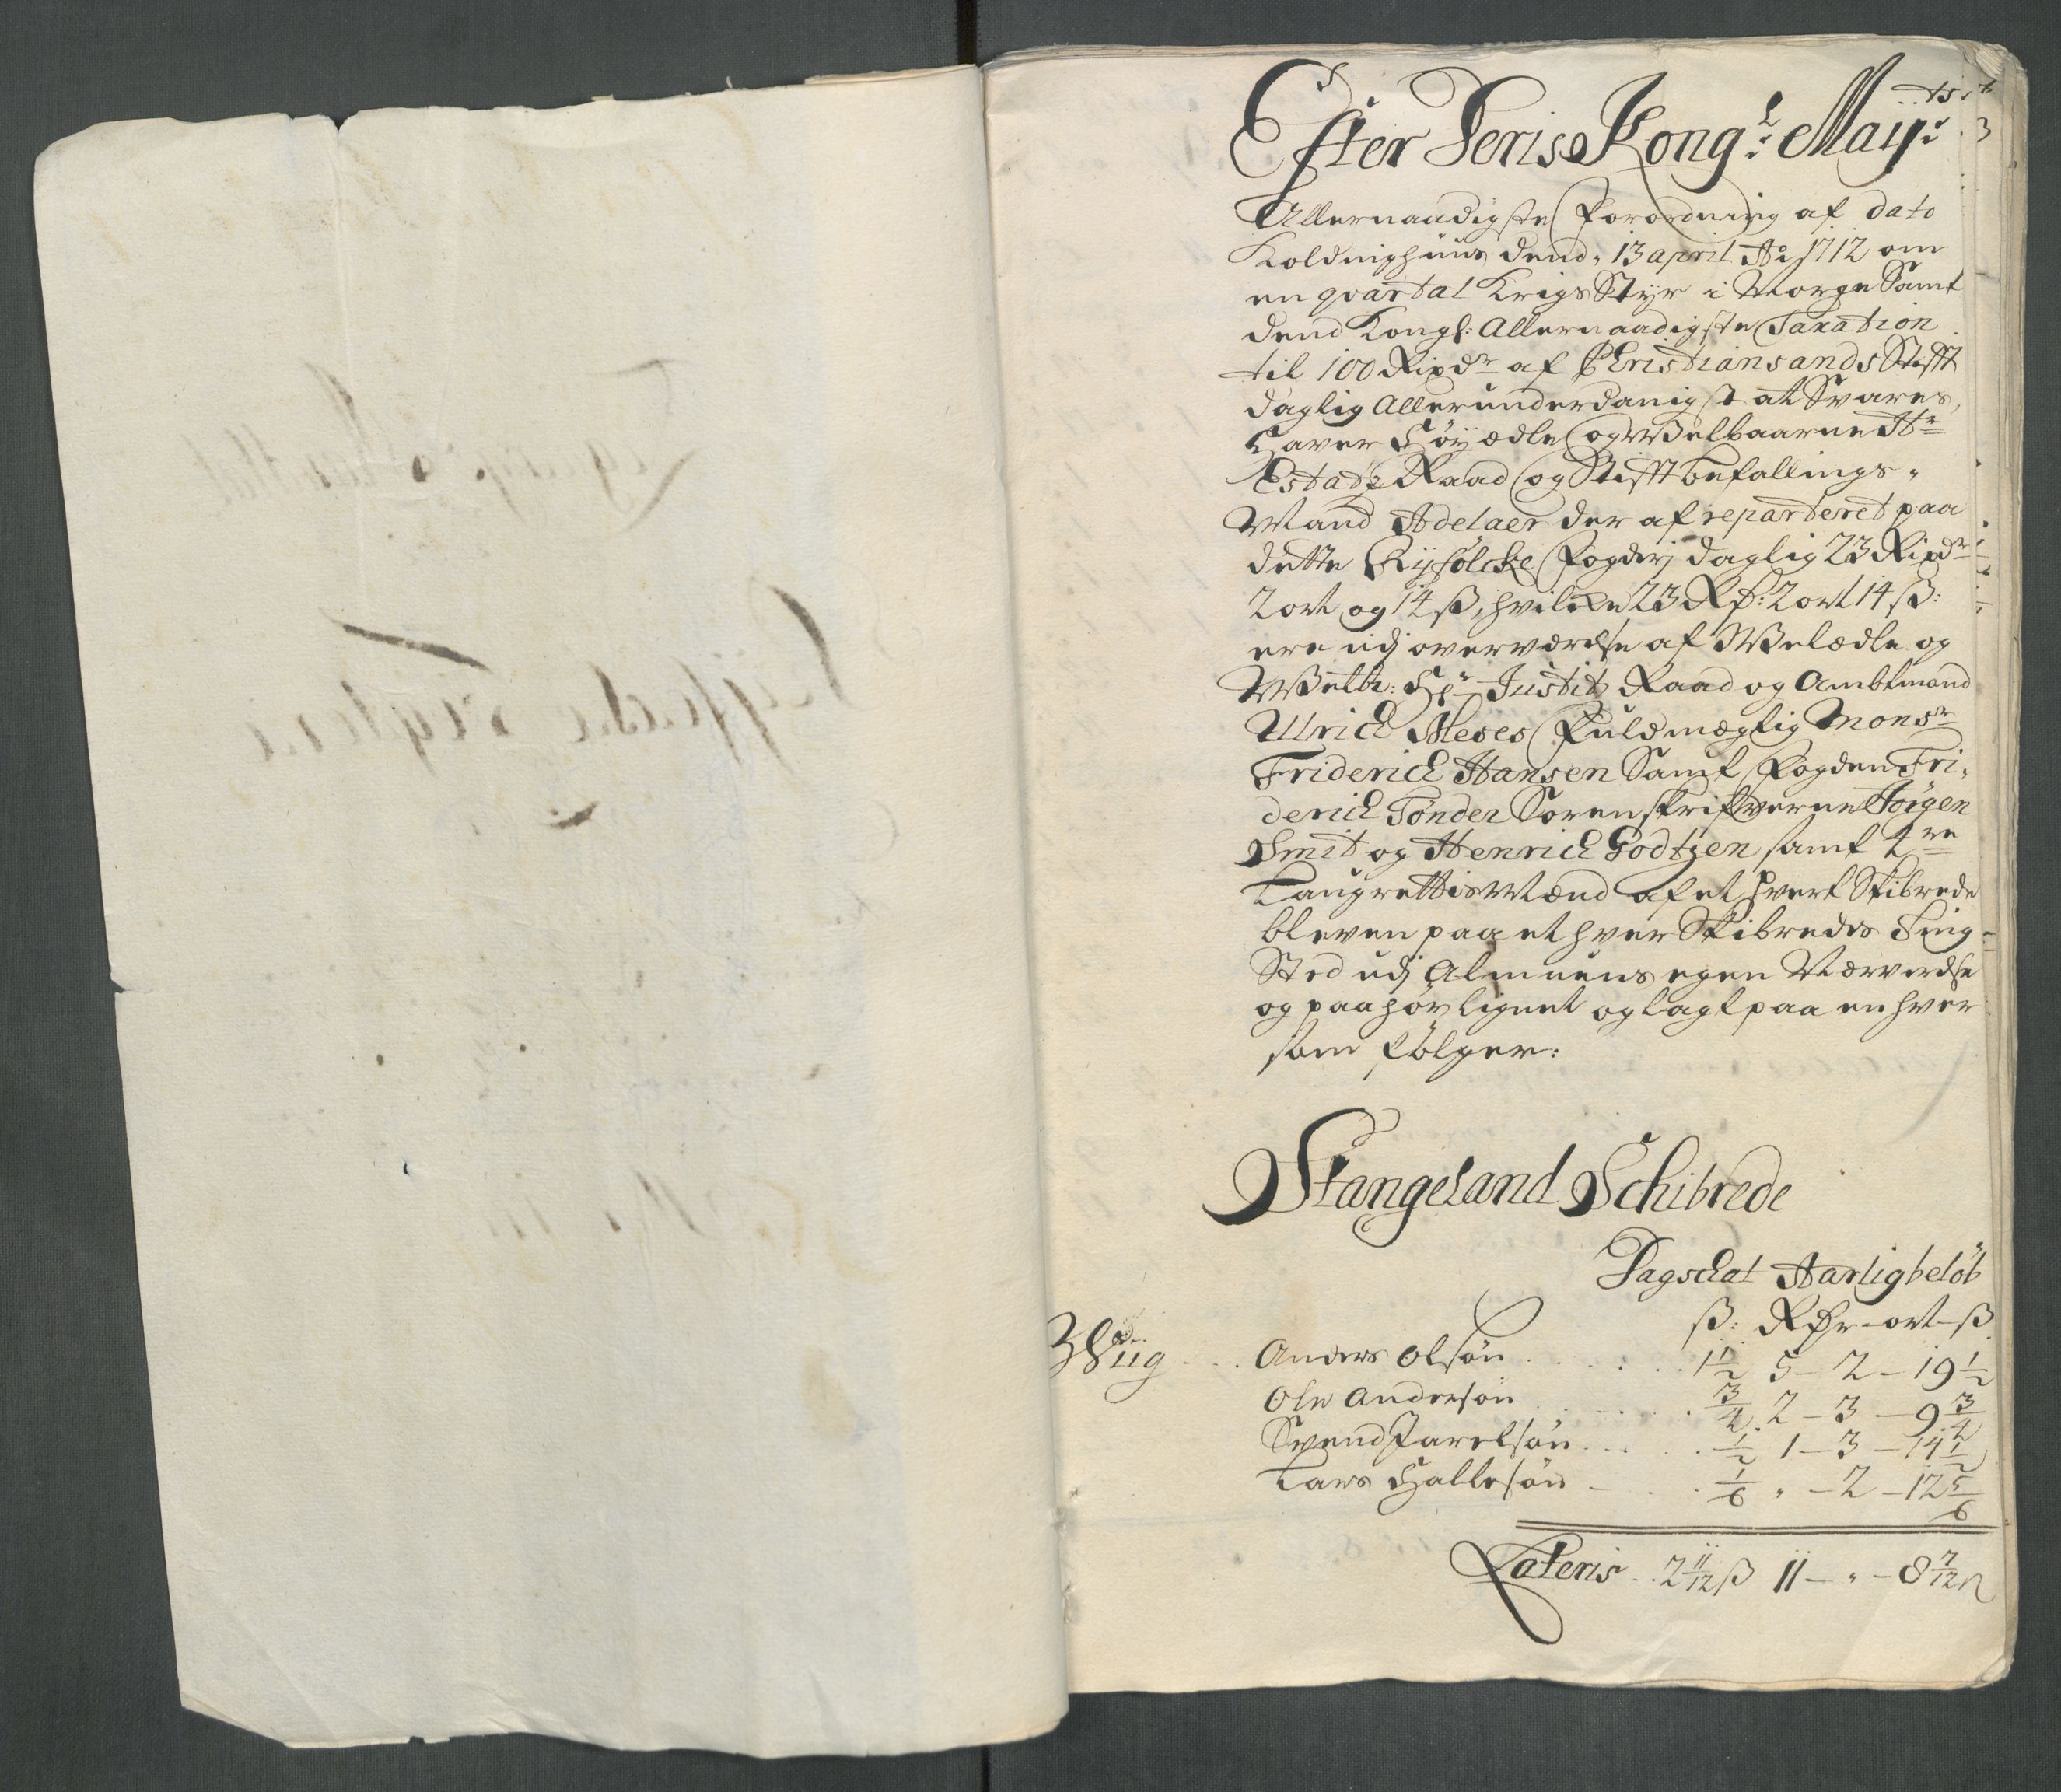 Efter Deris Kong:l Maij:ts
Allernaadigste Forordning af dato
Koldinghuus dend 13 april Ao 1712 om
en qvartal Krigs Styr i Norge Samt
dend Kongl: Allernaadigste Taxation
til 100 Rixdr af Christiansands Stifft
daglig Allerunderdanigst at Svares,
Haver Høyædle og Welbaarne Hr
Estatz Raad og Stifftbefallings-
Mand Adelaer der af reparteret paa
dette Ryfølcke Fogderj daglig 23 Rixdr
2 ort og 14 ß, hvilcke 23 Rd: 2 ort 14 ß:
ere udj overværelse af Welædle og
Welb: Hr Justitz Raad og Ambtmand
Ulrich Meses Fuldmægtig Monsr
Friderich Hansen Samt Fogden Fri-
derich Tonder Sorenskrifverne Jørgen
Smit og Henrich Godtzen samt 4re
Laugrettis Mænd af et hvert Skibrede
bleven paa et hver Skibredes Ting
Sted udj Almuens egen Nærværelse
og paahør lignet og lagt paa en hver
som følger:
Stangeland Schibrede
Dagschat Aarlig beløb
ß: Rdr - ort - ß
Anders Olsøn . . . 1 1/2 5 - 2 - 19 1/2
Ole Andersøn . . . 3/4 2 - 3 - 9 3/4
Svend Jarelsøn . . . 1/2 1 - 3 - 14 1/2
Lars Hallesøn - . . 1/6 " - 2 - 12 5/6
Lateris . . 2 11/12 ß 11 - " - 8 7/12 ß